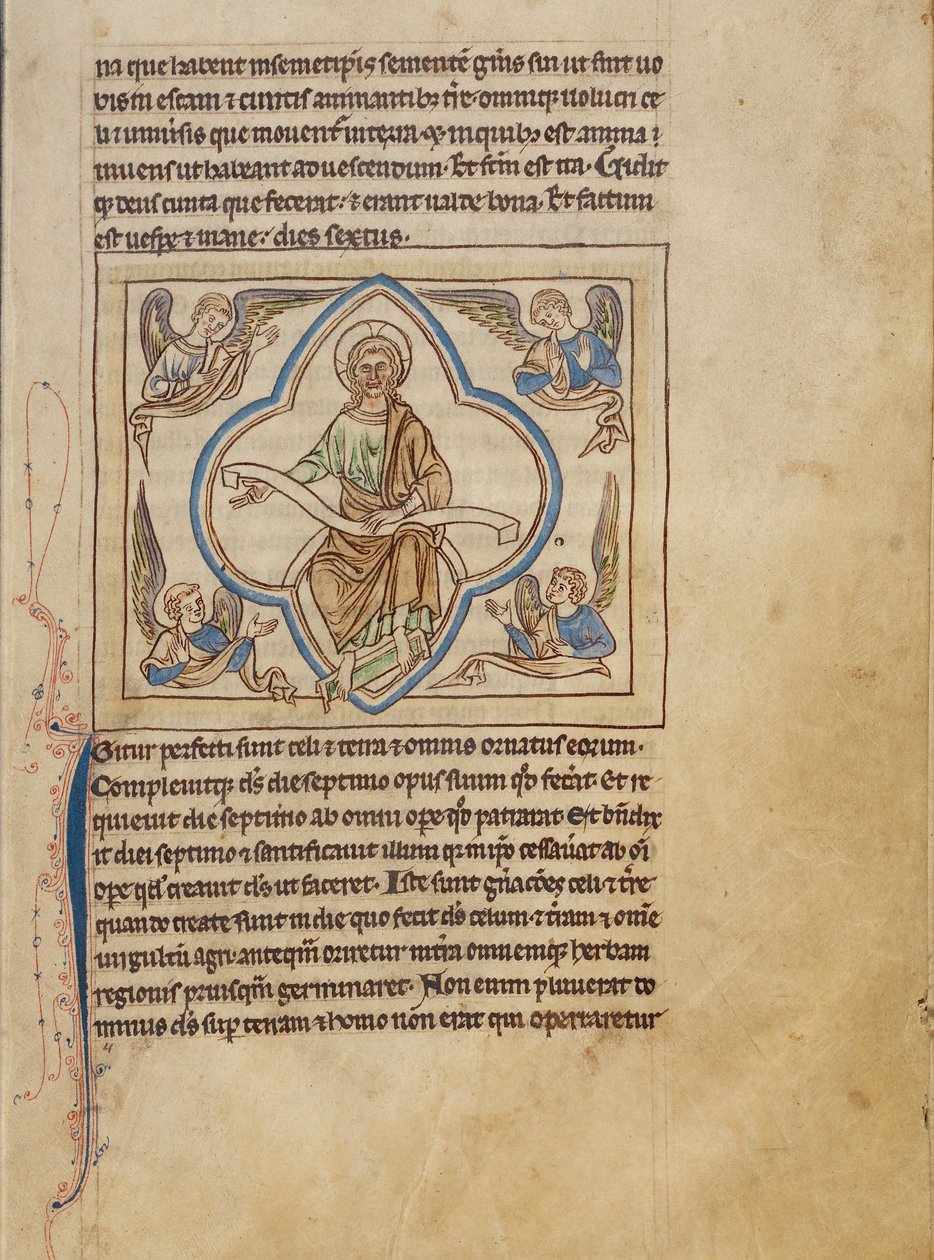 na que habent in semetip̄is sementē gn̄is sui ut sint uo
bis in escam ⁊ cunctis animantibꝫ t̄re· omniqꝫ uolucri ce
li ⁊ uniu̓sis que mouent᷑ in terra· ⁊ in quibꝫ est anima i
uiuens ut habeant ad uescendum· Et fc̄m est ita· Cridit
qꝫ deus cuncta que fecerat· ⁊ erant ualde bona· Et factum
est uesꝑe ⁊ mane· dies sextus·
Igitur perfecti sunt celi ⁊ terra ⁊ omnis ornatus eorum·
Compleuitqꝫ ds̄ die septimo opus suum qd̓ fec̄at· Et re
quieuit die septimo ab omni oꝑe qd̓ patrarat Et bn̄dix
it diei septimo ⁊ santificauit illum qr in ip̄o cessau̓at ab oī
oꝑe qd̓ creauit ds̄ ut faceret· Iste sunt gn̄acōes celi ⁊ t̄re
quando create sunt in die quo fecit ds̄ celum· ⁊ t̄ram ⁊ om̄e
uirgultū agri· anteqm̄ oriretur in t̄ra omnemqꝫ herbam
regionis priusqm̄ germinaret· Non enim pluuerat do
minus ds̄ suꝑ terram ⁊ homo non erat qui operraretur